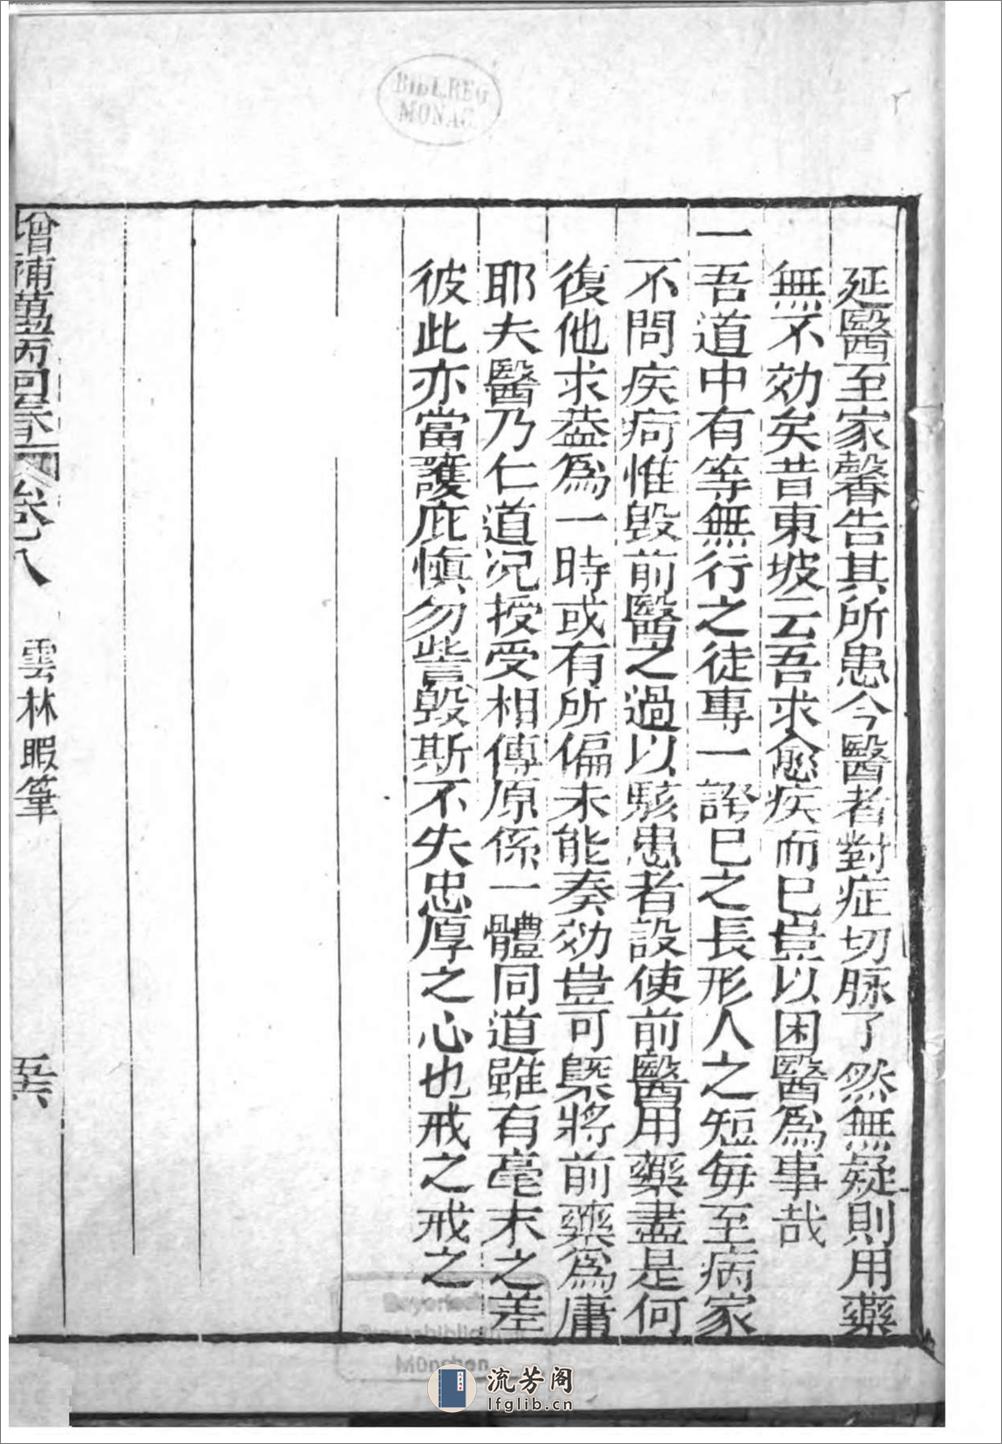 延醫至家罄告其所患令醫者對症切脉了然無疑則用藥
無不効矣昔東坡云吾求愈疾而已豈以困醫爲事哉
一吾道中有等無行之徒專一誇已之長形人之短每至病家
不問疾疴惟毀前醫之過以駭患者設使前醫用藥盡是何
復他求葢爲一時或有所偏未能奏効豈可槩將前藥爲庸
耶夫醫乃仁道况授受相傳原係一體同道雖有毫末之差
彼此亦當護庇愼勿訾毀斯不失忠厚之心也戒之戒之
增補萬病回春 卷八 雲林暇筆 五六
BIBL.REG.
MONAC.
Bayerische
Staatsbibliothek
München
流芳阁
lfglib.cn